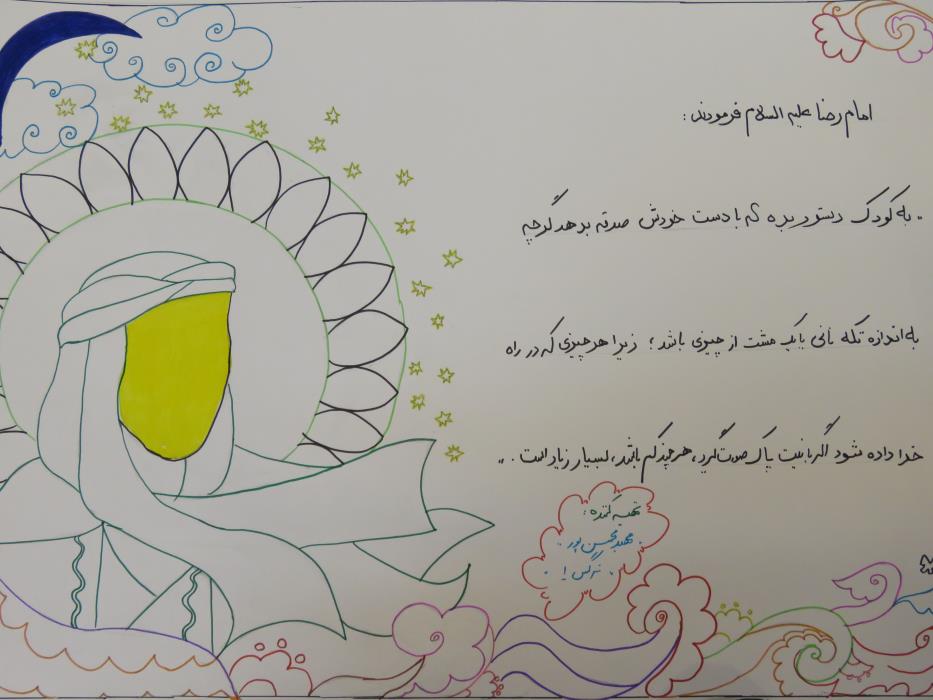 امام رضا علیه السلام فرمودند:
"به کودک دستور بده که با دست خودش صدقه بدهد گرچه
به اندازه تکه نانی یا یک مشت از چیزی باشد؛ زیرا هر چیزی که در راه
خدا داده شود اگر با نیت پاک صورت گیرد، هر چند کم باشد، بسیار زیاد است."
تهیه کننده:
محسن پور
نرگس